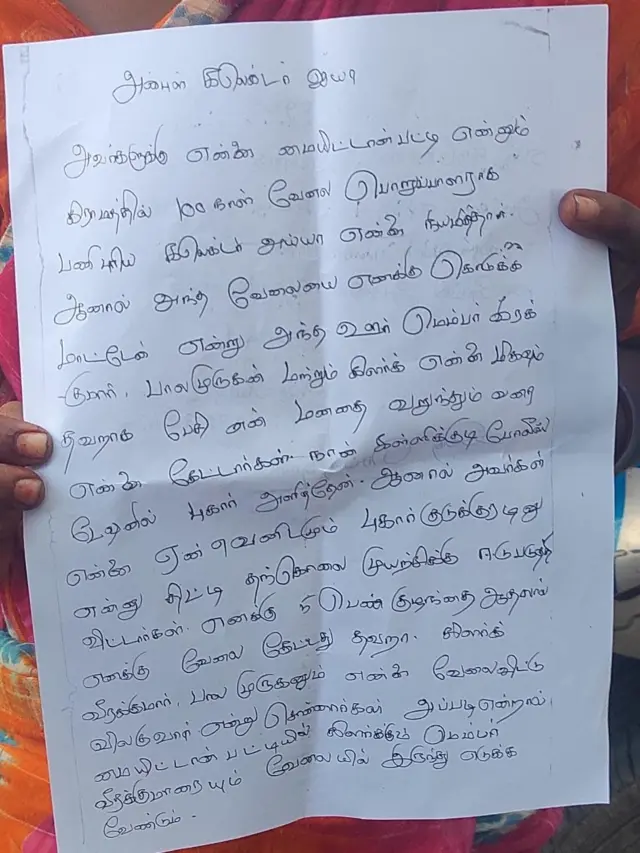 அன்புள் கலெக்டர் ஐயா
அவர்களுக்கு என்னை மையிட்டான்பட்டி என்னும்
கிராமத்தில் 100 நாள் வேலை பொறுப்பாளராக
பணிபுரிய கலெக்டர் அய்யா என்னை நியமித்தார்.
ஆனால் அந்த வேலையை எனக்கு கொடுக்க
மாட்டேன் என்று அந்த ஊர் மெம்பர் வீரக்
குமார், பாலமுருகன் மற்றும் கிளர்க் என்னை மிகவும்
தவறாக பேசி என் மனதை வருந்தும் வரை
என்னை கேட்டார்கள். நான் கள்ளிக்குடி போலீஸ்
டேஷனில் புகார் அளித்தேன். ஆனால் அவர்கள்
என்னை ஏன் எவனிடமும் புகார் குடுக்குற
என்று திட்டி தற்கொலை முயற்சிக்கு ஈடுபடுத்தி
விட்டார்கள். எனக்கு 5 பெண் குழந்தை ஆதலால்
எனக்கு வேலை கேட்டது தவறா. கிளர்க்
வீரக்குமார், பால முருகனும் என்னை வேலைவிட்டு
விலகுவார் என்று சொன்னார்கள் அப்படி என்றால்,
மையிட்டான் பட்டியில் கிளர்க்கும் மெம்பர்
வீரக்குமாரையும் வேலையில் இருந்து எடுக்க
வேண்டும்.